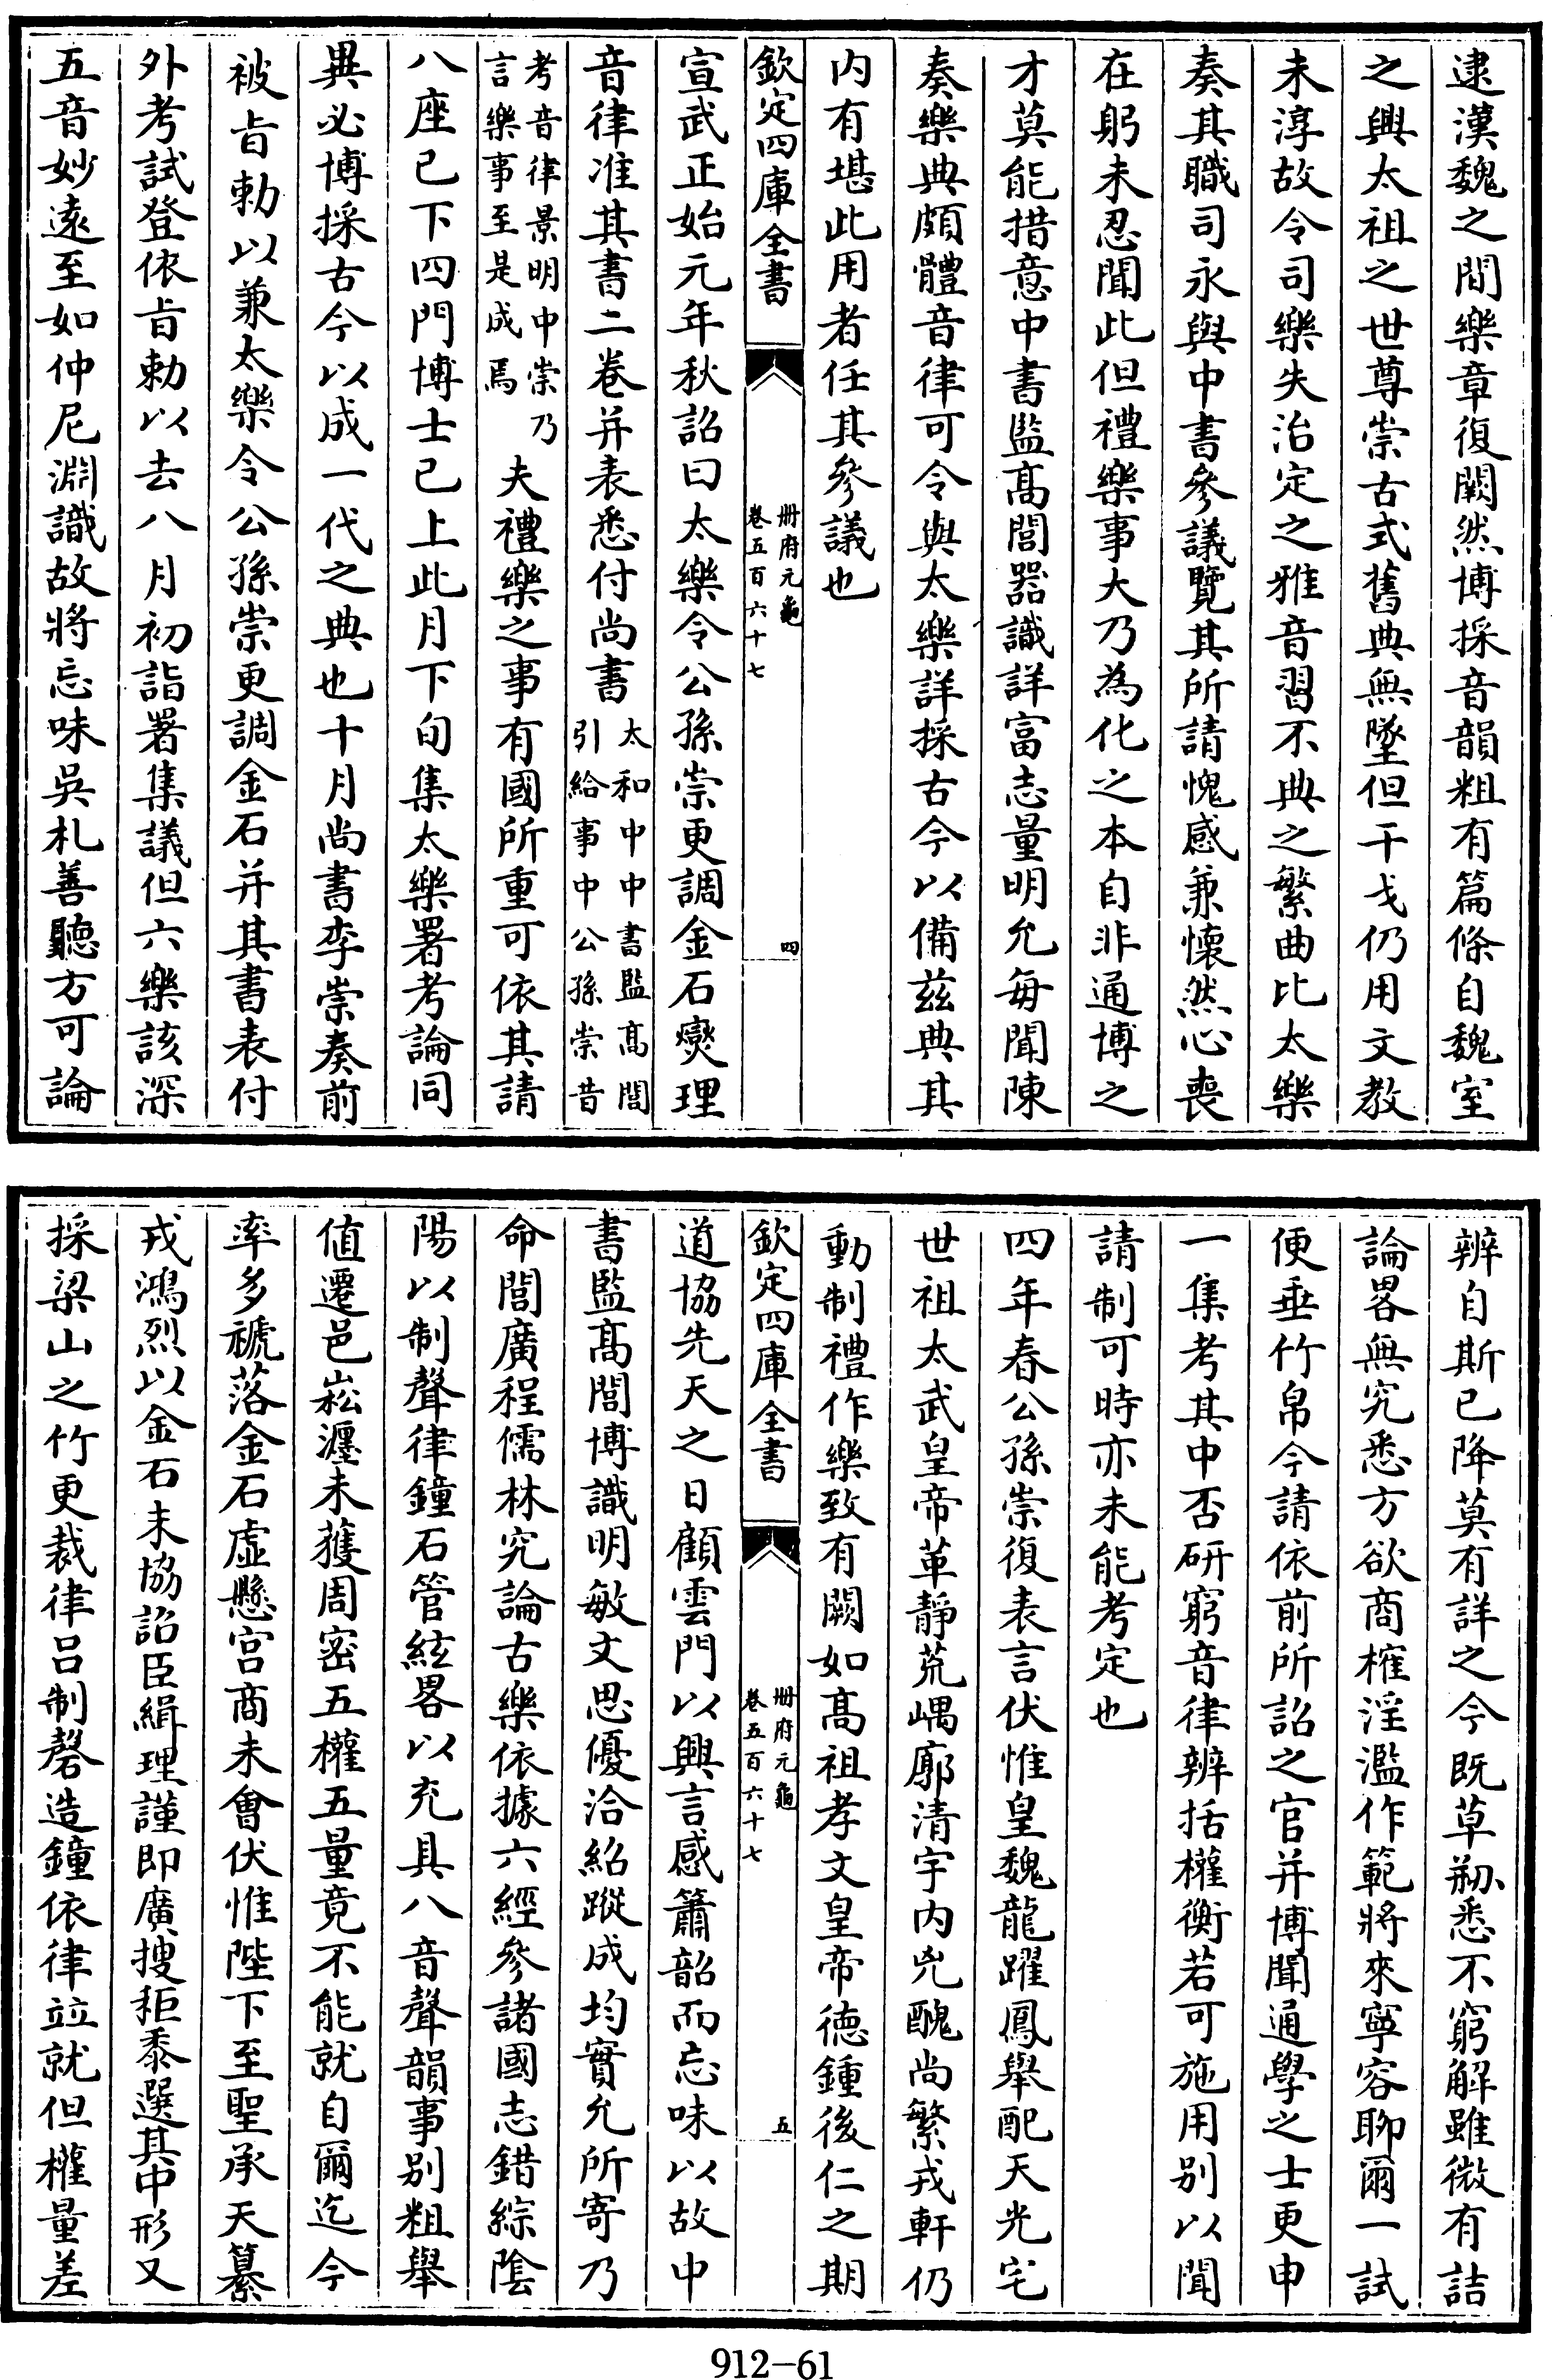 逮漢魏之間樂章復闕然博採音韻粗有篇條自魏室
之興太祖之世尊崇古式舊典無墜但干戈仍用文教
未淳故令司樂失治定之雅音習不典之繁曲比太樂
奏其職司永與中書參議覽其所請愧感兼懷然心喪
在躬未忍聞此但禮樂事大乃為化之本自非通博之
才莫能措意中書監高閭器識詳富志量明允每聞陳
奏樂典頗體音律可令與太樂詳採古今以備茲典其
内有堪此用者任其參議也
欽定四庫全書
冊府元龜
卷五百六十七
四
宣武正始元年秋詔曰太樂令公孫崇更調金石燮理
音律准其書二卷并表悉付尚書太和中中書監高閭引給事中公孫崇昔
考音律景明中崇乃言樂事至是成焉夫禮樂之事有國所重可依其請
八座已下四門博士已上此月下旬集太樂署考論同
異必博採古今以成一代之典也十月尚書李崇奏前
被旨勅以兼太樂令公孫崇更調金石并其書表付
外考試登依旨勅以去八月初詣署集議但六樂該深
五音妙遠至如仲尼淵識故將忘味吳札善聽方可論
辨自斯已降莫有詳之今既草剏悉不窮解雖微有詰
論畧無究悉方欲商榷淫濫作範將來寧容聊爾一試
便垂竹帛今請依前所詔之官并博聞通學之士更申
一集考其中否研窮音律辨括權衡若可施用别以聞
請制可時亦未能考定也
四年春公孫崇復表言伏惟皇魏龍躍鳳舉配天光宅
世祖太武皇帝革靜荒嵎廓清宇内兇醜尚繁戎軒仍
動制禮作樂致有闕如高祖孝文皇帝德鍾後仁之期
欽定四庫全書
冊府元龜
卷五百六十七
五
道協先天之日顧雲門以興言感簫韶而忘味以故中
書監高閭博識明敏文思優洽紹蹤成均實允所寄乃
命閭廣程儒林究論古樂依據六經參諸國志錯綜陰
陽以制聲律鐘石管絃畧以充具八音聲韻事别粗舉
值遷邑崧瀍未獲周密五權五量竟不能就自爾迄今
率多禠落金石虛懸宮商未會伏惟陛下至聖承天纂
戎鴻烈以金石未協詔臣緝理謹即廣搜秬黍選其中形又
採梁山之竹更裁律呂制磬造鐘依律竝就但權量差
912-61